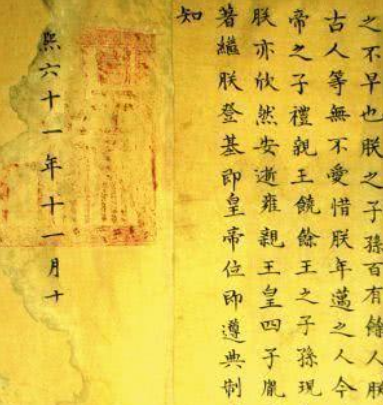 之不早也朕之子孫百有餘人朕
古人等無不愛惜朕年邁之人今
帝之子禮親王饒餘王之子孫現
朕亦欣然安逝雍親王皇四子胤
著繼朕登基即皇帝位即遵典制
知
熙六十一年十一月十